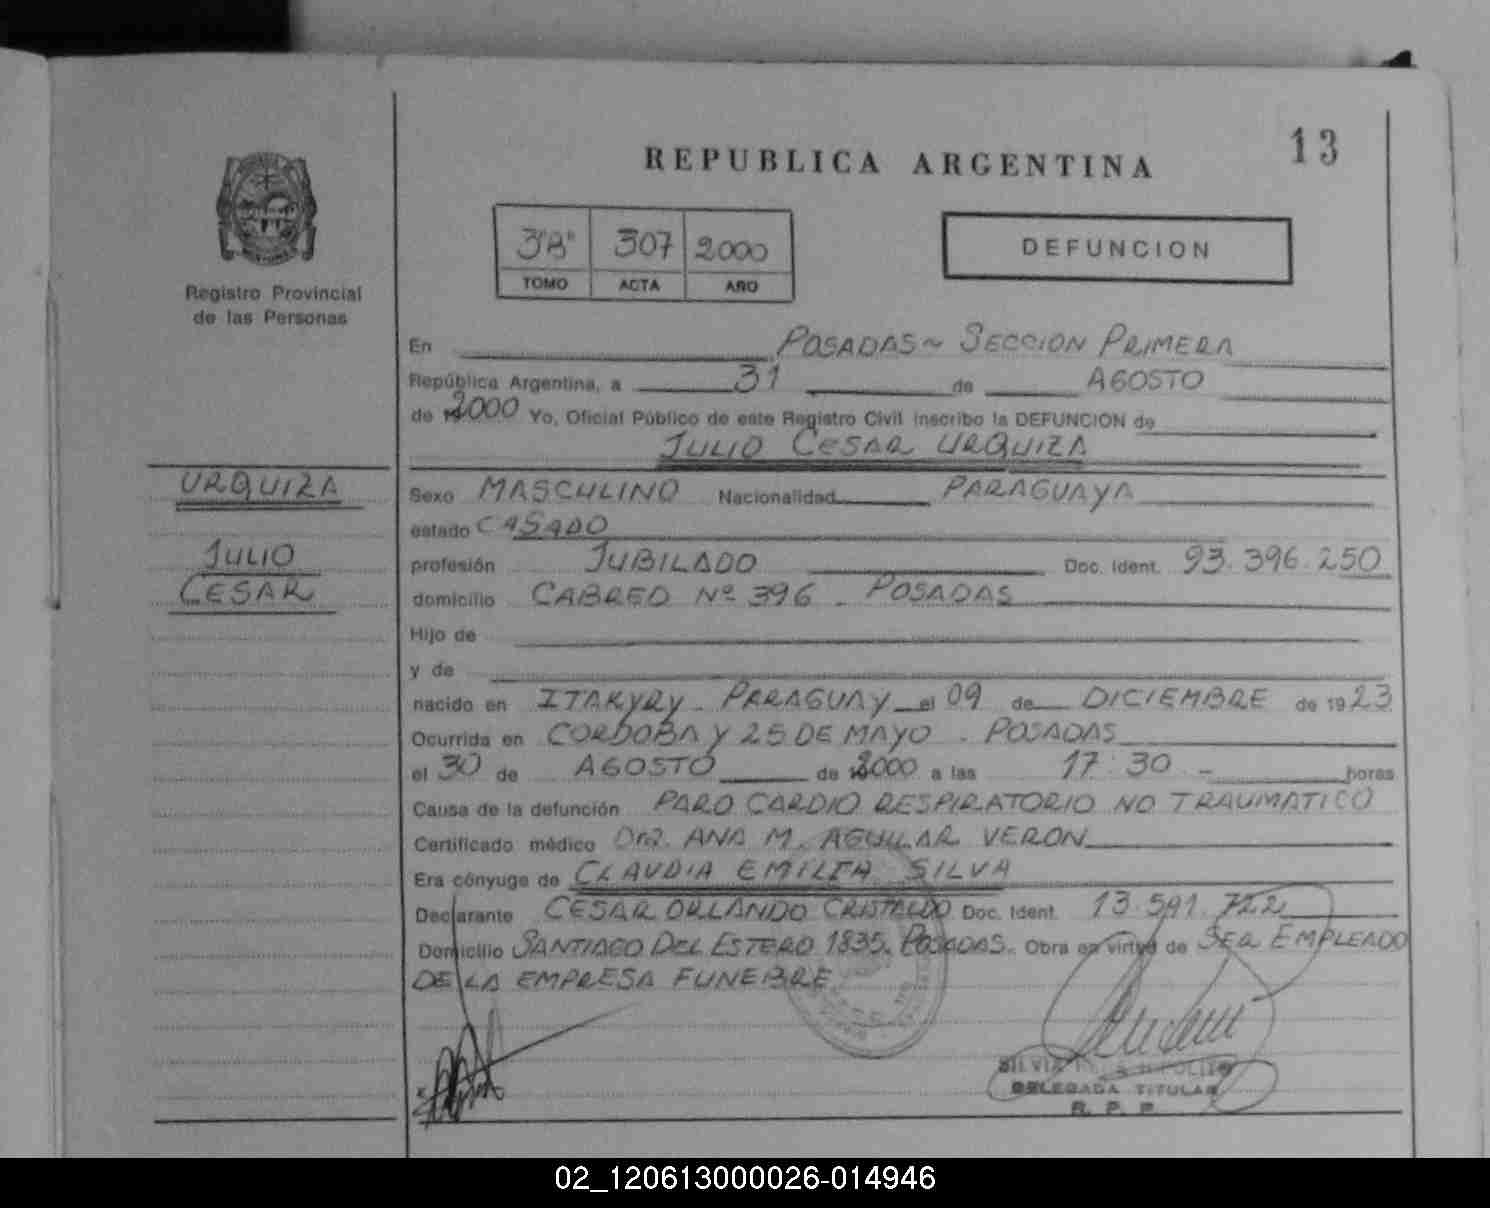 13
REPUBLICA ARGENTINA
3"B" 307 2000
TOMO ACTA AÑO
DEFUNCION
Registro Provincial
de las Personas
En POSADAS~ SECCION PRIMERA
República Argentina, a 31 de AGOSTO
de 2000 Yo, Oficial Público de este Registro Civil inscribo la DEFUNCION de
JULIO CESAR URQUIZA
URQUIZA
JULIO
CESAR
Sexo MASCULINO Nacionalidad PARAGUAYA
estado CASADO
profesión JUBILADO Doc. Ident. 93.396.250
domicilio CABRED Nº 396 - POSADAS
Hijo de
y de
nacido en ITAKYRY - PARAGUAY el 09 de DICIEMBRE de 1923
Ocurrida en CORDOBA Y 25 DE MAYO - POSADAS
el 30 de AGOSTO de 2000 a las 17:30 - horas
Causa de la defunción PARO CARDIO RESPIRATORIO NO TRAUMATICO
Certificado médico Dra. ANA M. AGUILAR VERON
Era cónyuge de CLAUDIA EMILIA SILVA
Declarante CESAR ORLANDO CRISTALDO Doc. Ident. 13.591.722
Domicilio SANTIAGO DEL ESTERO 1835. POSADAS. Obra en virtud de SER EMPLEADO
DE LA EMPRESA FUNEBRE
SILVIA
DELEGADA TITULAR
R. P. P.
02_120613000026-014946